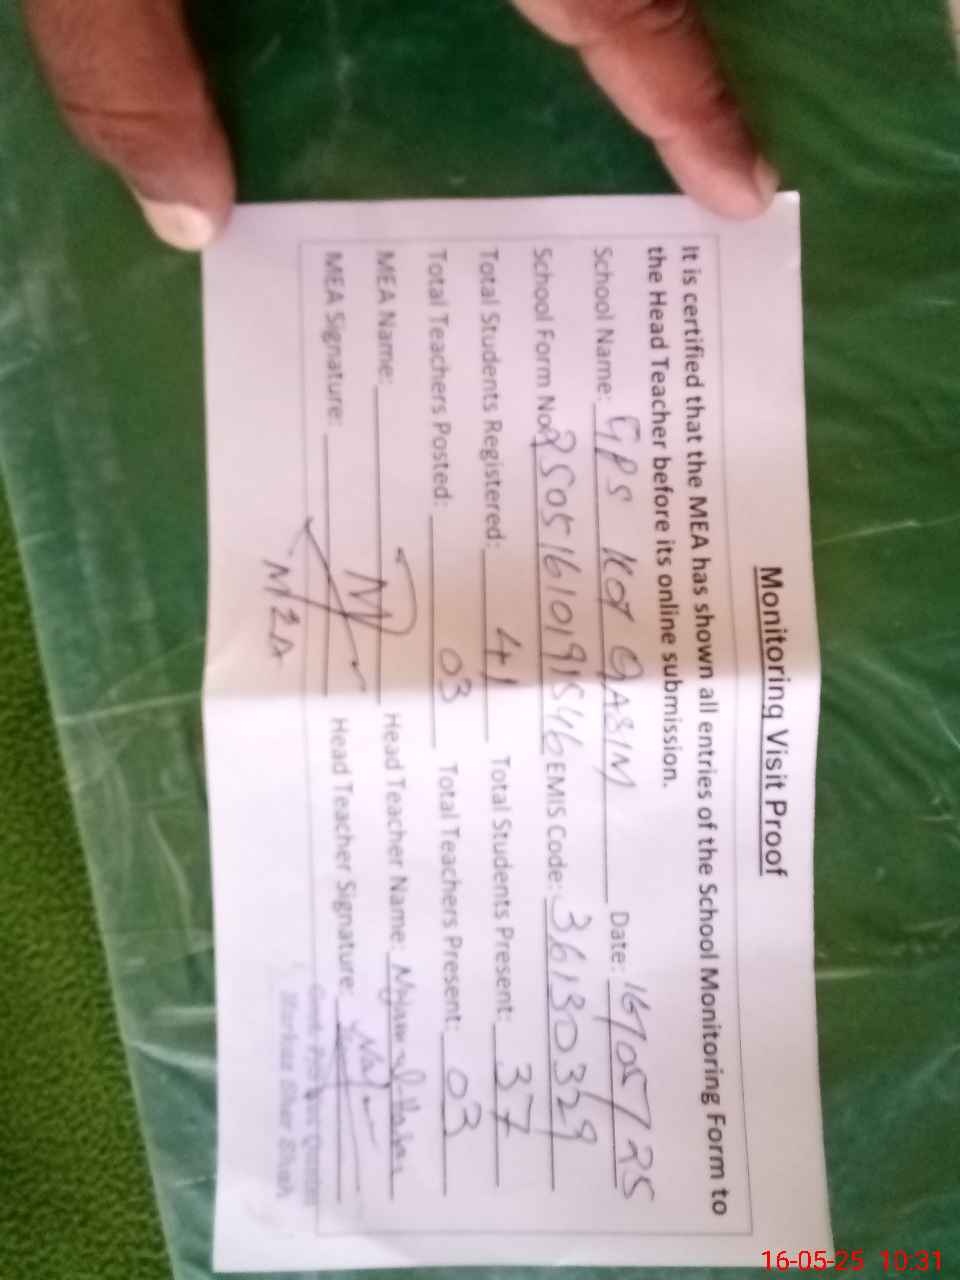 Monitoring Visit Proof
It is certified that the MEA has shown all entries of the School Monitoring Form to
the Head Teacher before its online submission.
School Name: GPS KOT QASIM Date: 16/05/25
School Form No: 25051610191546 EMIS Code: 36130329
Total Students Registered: 41 Total Students Present: 37
Total Teachers Posted: 03 Total Teachers Present: 03
MEA Name: Head Teacher Name:
MEA Signature: Head Teacher Signature:
Markaz Sher Shah
16-05-25 10:31